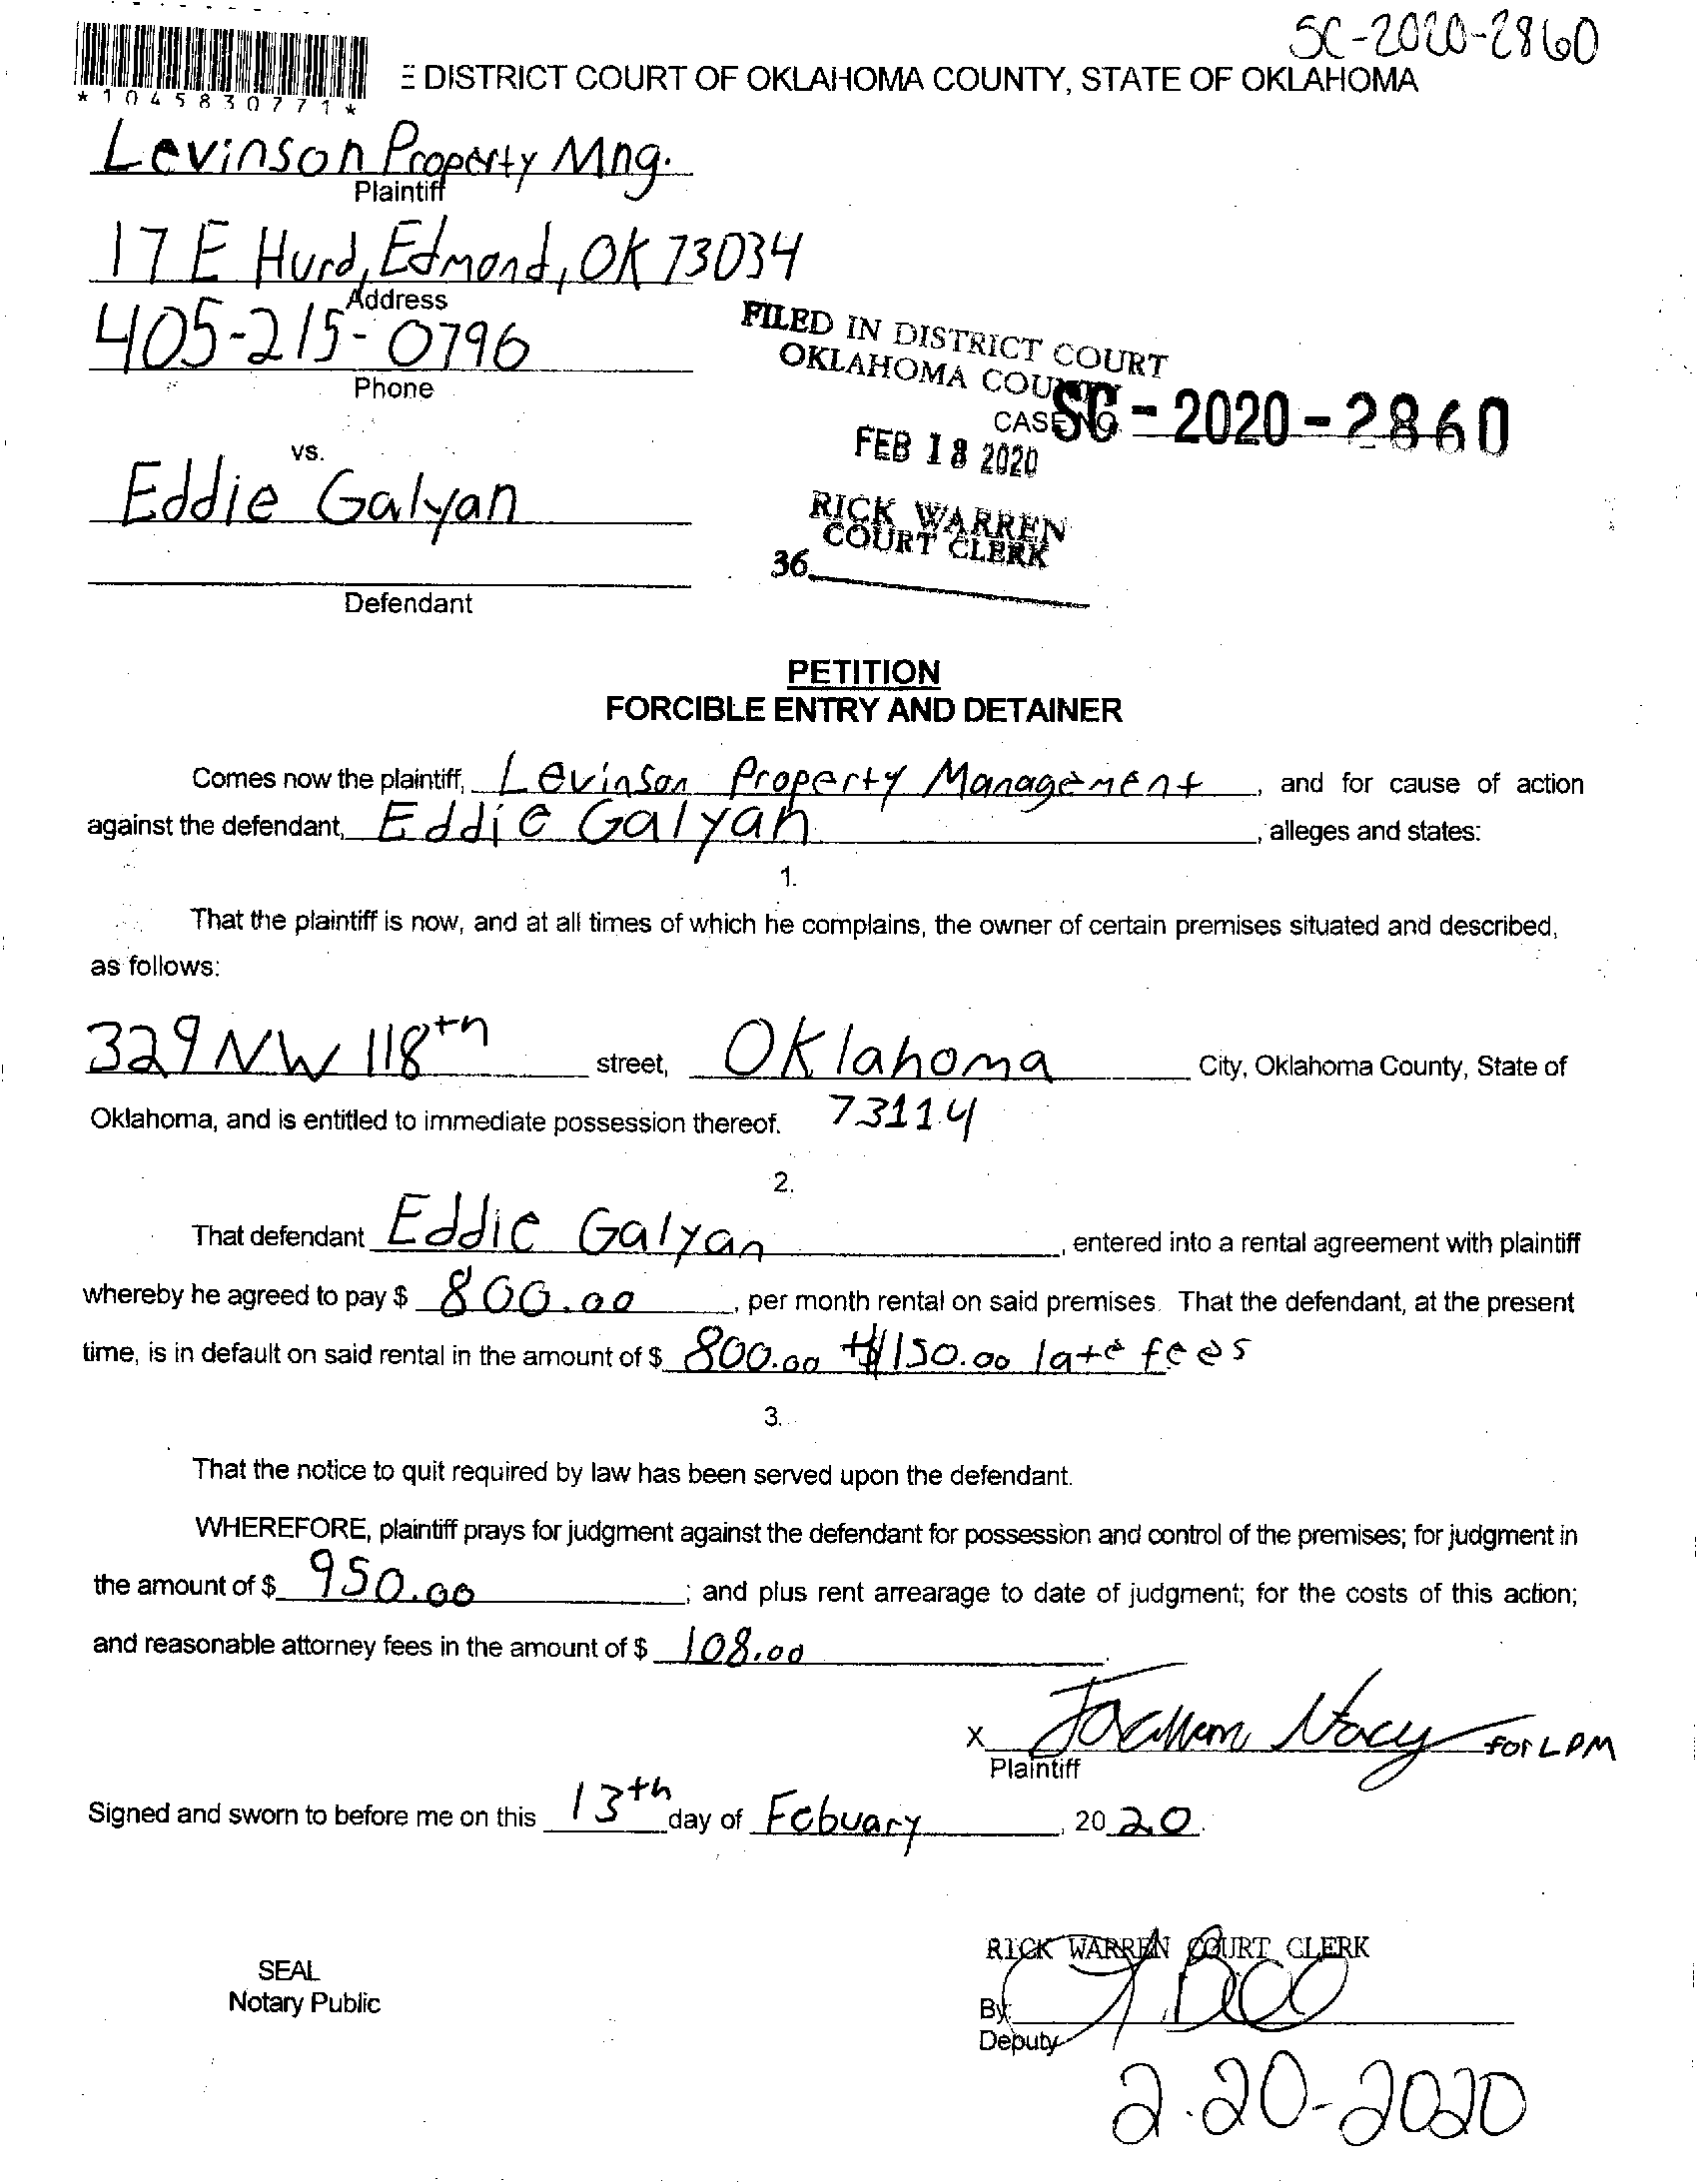 SC-2020-2860
*1045830771*
E DISTRICT COURT OF OKLAHOMA COUNTY, STATE OF OKLAHOMA
Levinson Property Mng.
Plaintiff
17 E Hurd, Edmond, OK 73034
Address
405-215-0796
Phone
FILED IN DISTRICT COURT
OKLAHOMA COUNTY
CASE NO. SC-2020-2860
FEB 18 2020
RICK WARREN
COURT CLERK
36
vs.
Eddie Galyan
Defendant
PETITION
FORCIBLE ENTRY AND DETAINER
Comes now the plaintiff, Levinson Property Management, and for cause of action
against the defendant, Eddie Galyan, alleges and states:
1.
That the plaintiff is now, and at all times of which he complains, the owner of certain premises situated and described,
as follows:
329 NW 118th street, Oklahoma City, Oklahoma County, State of
Oklahoma, and is entitled to immediate possession thereof. 73114
2.
That defendant Eddie Galyan, entered into a rental agreement with plaintiff
whereby he agreed to pay $ 800.00, per month rental on said premises. That the defendant, at the present
time, is in default on said rental in the amount of $ 800.00 + $150.00 late fees
3.
That the notice to quit required by law has been served upon the defendant.
WHEREFORE, plaintiff prays for judgment against the defendant for possession and control of the premises; for judgment in
the amount of $ 950.00; and plus rent arrearage to date of judgment; for the costs of this action;
and reasonable attorney fees in the amount of $ 108.00.
X for LPM
Plaintiff
Signed and sworn to before me on this 13th day of Febuary, 2020.
SEAL
Notary Public
RICK WARREN COURT CLERK
By:
Deputy
2-20-2020